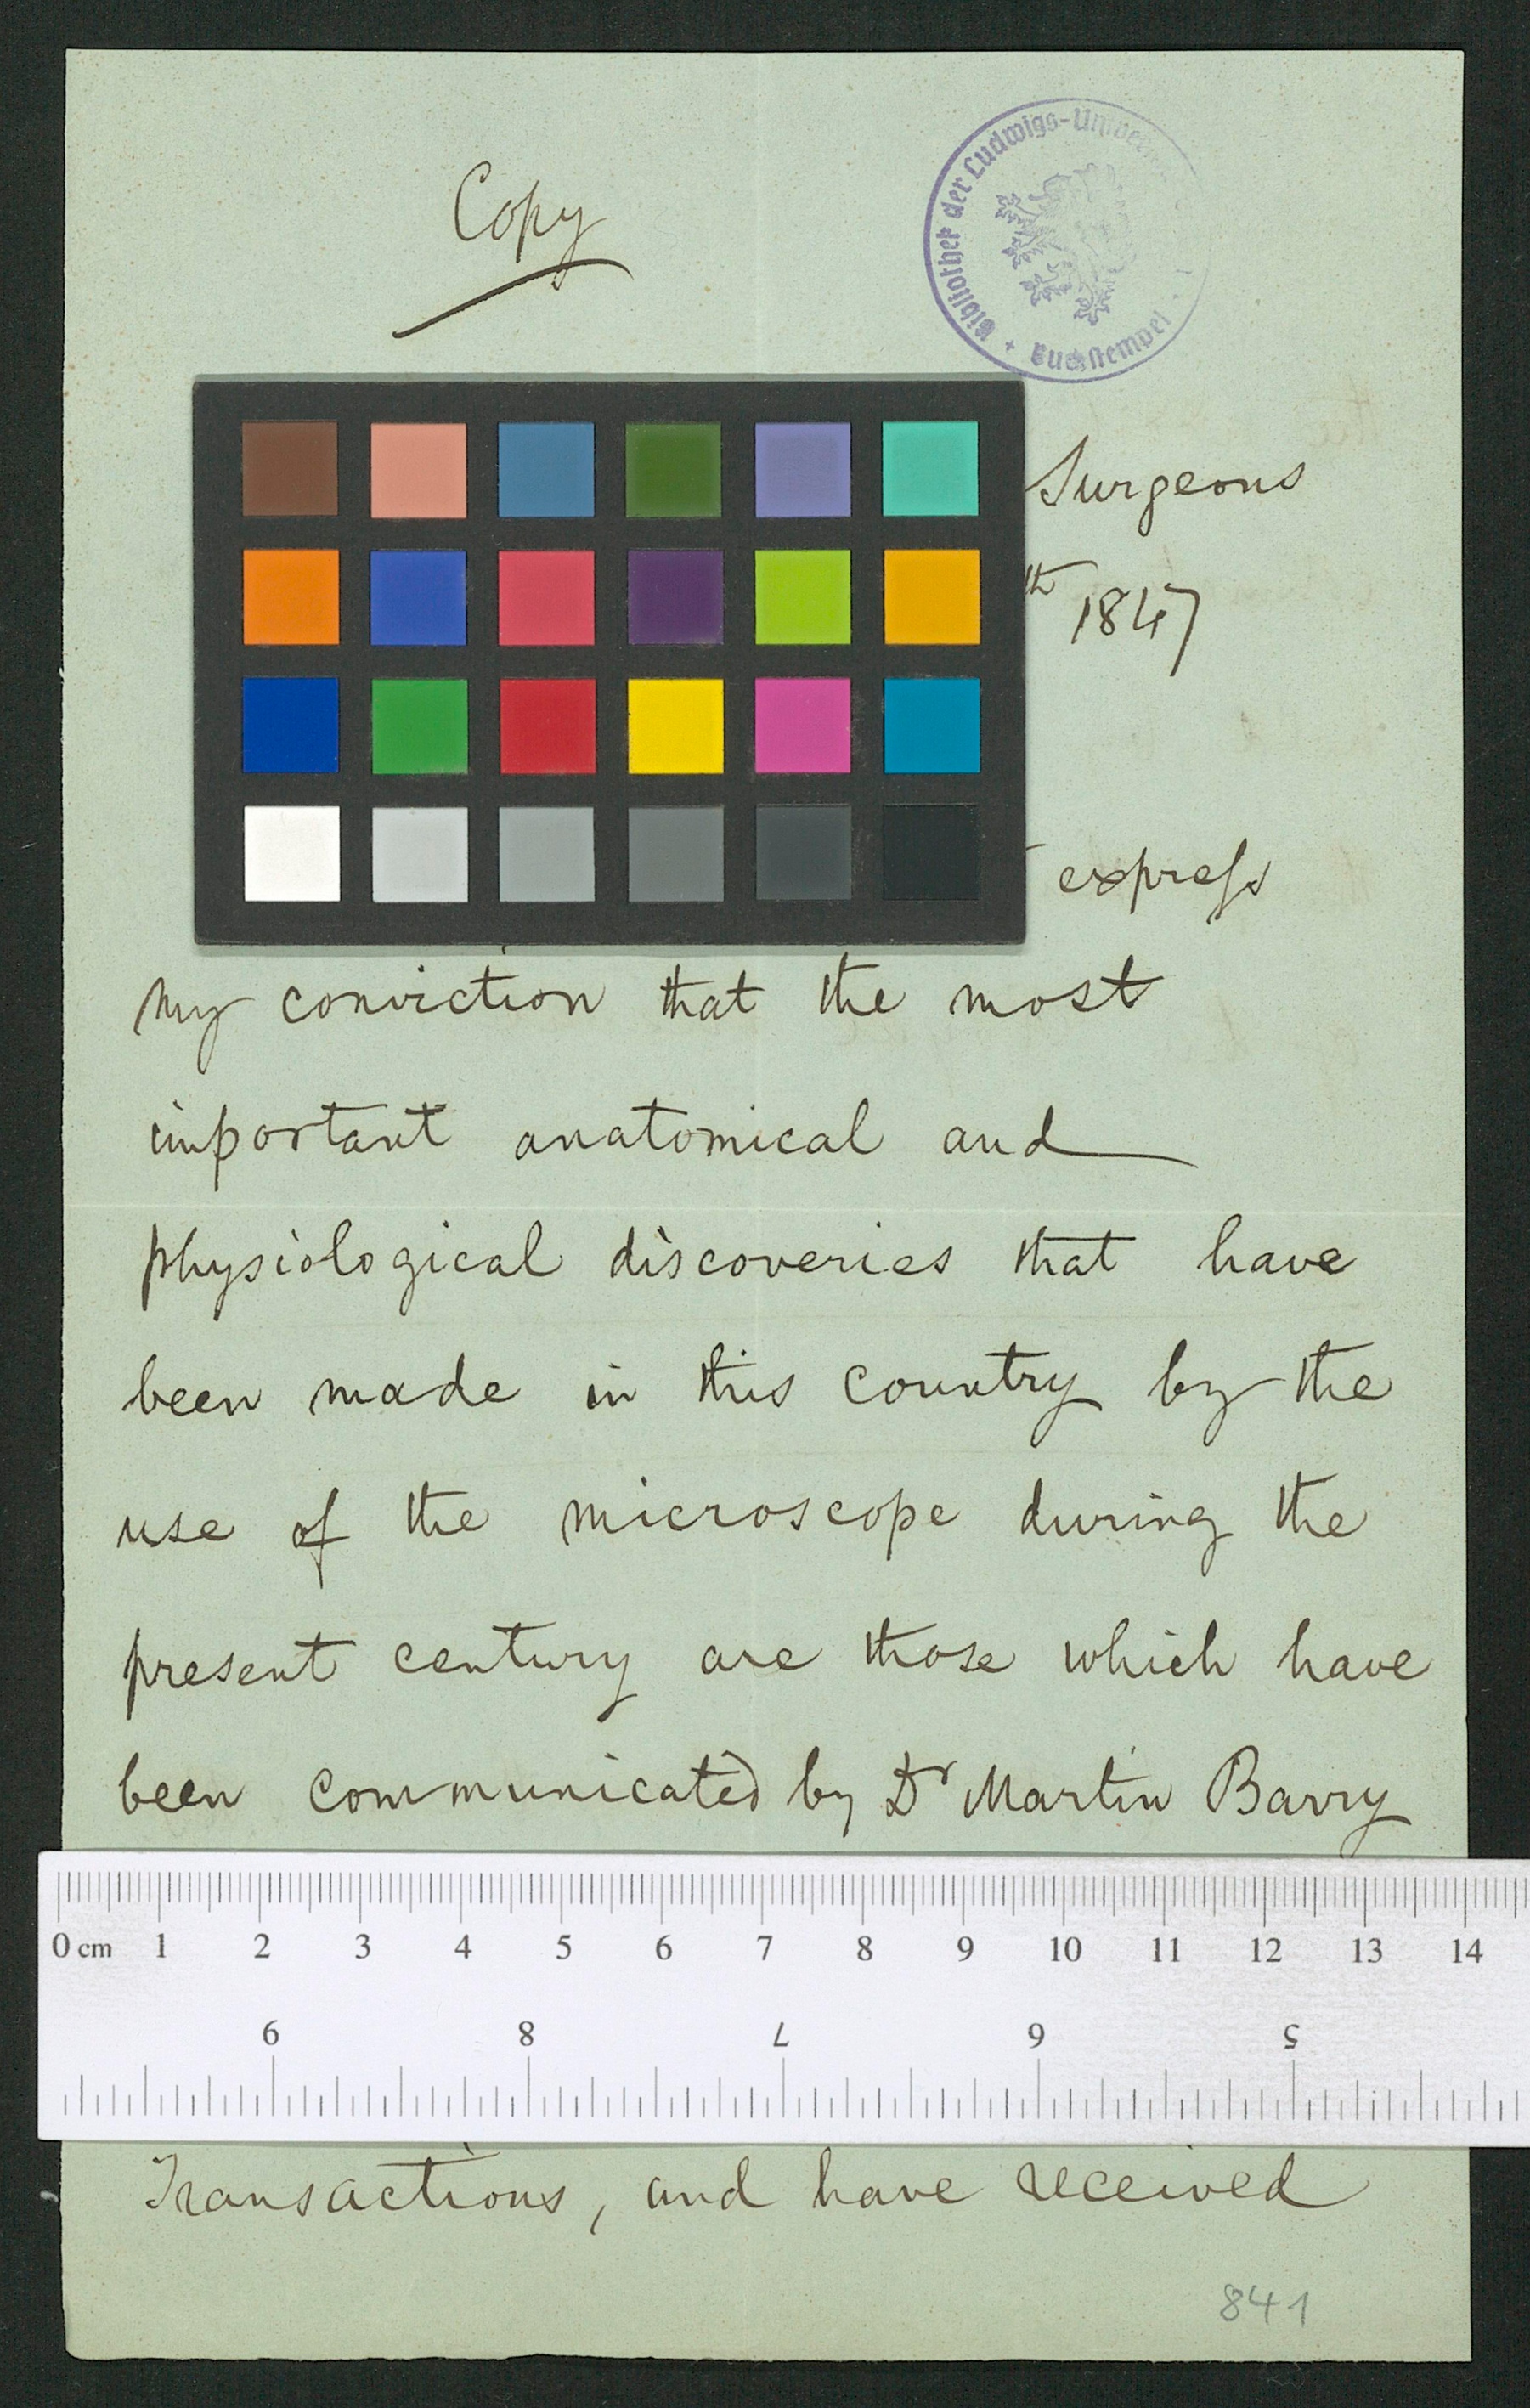 Copy
Bibliothek der Ludwigs-
Buchstempel
Surgeons
th 1847
express
my conviction that the most
important anatomical and
physiological discoveries that have
been made in this country by the
use of the microscope during the
present century are those which have
been communicated by Dr Martin Barry
0 cm 1 2 3 4 5 6 7 8 9 10 11 12 13 14
9 8 7 6 5
Transactions, and have received
841